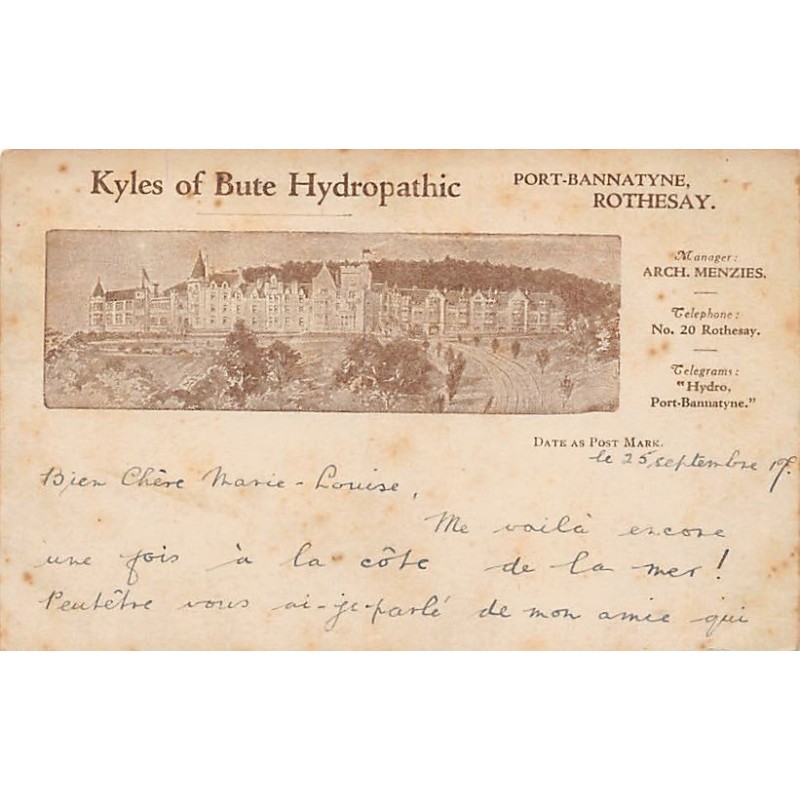 Kyles of Bute Hydropathic
PORT-BANNATYNE,
ROTHESAY.
Manager:
ARCH. MENZIES.
Telephone:
No. 20 Rothesay.
Telegrams:
"Hydro,
Port-Bannatyne."
DATE AS POST MARK.
le 25 septembre 17.
Bien Chère Marie-Louise,
Me voilà encore
une fois à la côte de la mer!
Peutêtre vous ai-je-parlé de mon amie qui